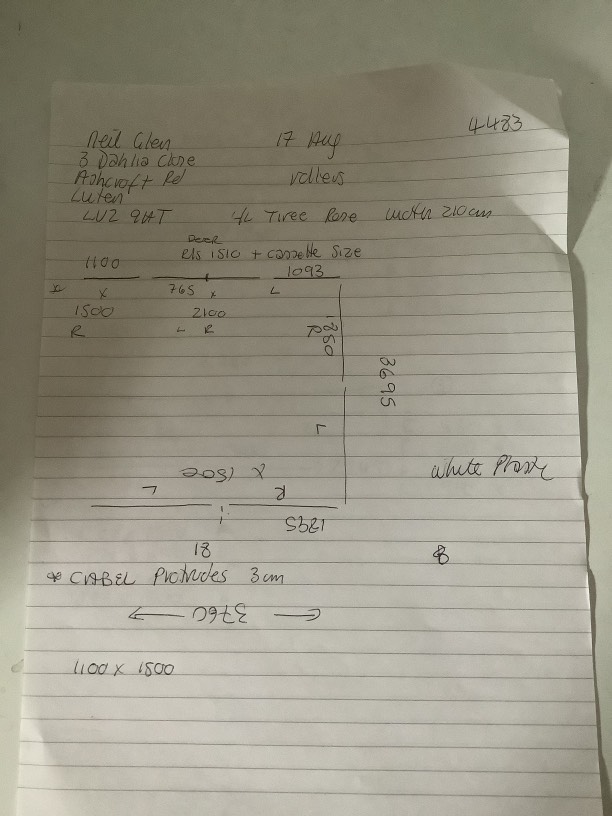 4483
Neil Glen 17 Aug
3 Dahlia Close
Ashcroft Rd rollers
Luton
LU2 9UT Tiree Rose width 210cm
DOOR
R/s 1510 + cassette size
1100 1093
* x 765 x L
1500 2100
R L R
R
3695
L
x 1500 White Plastic
L R
1895
18 8
* CABEL Protrudes 3cm
← 3760 →
1100 x 1500